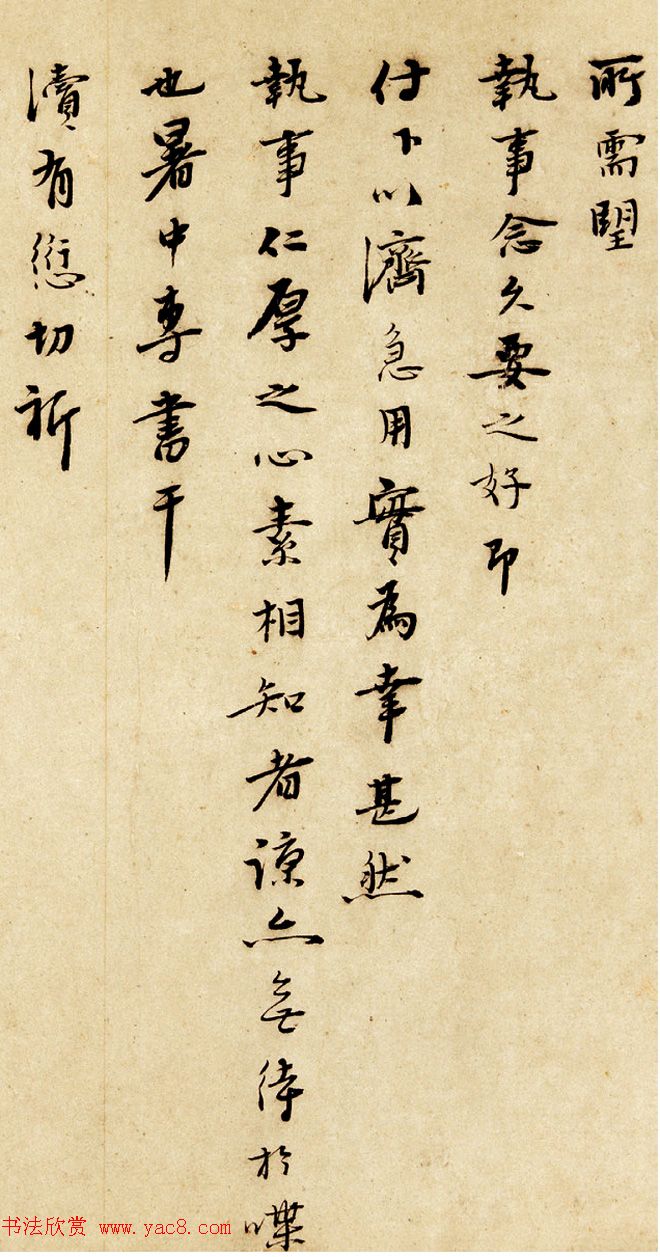 所需望
執事念久要之好即
付下以濟急用實為幸甚然
執事仁厚之心素相知者諒亦無待於喋
也暑中專書干
瀆有愆切祈
书法欣赏 www.yac8.com